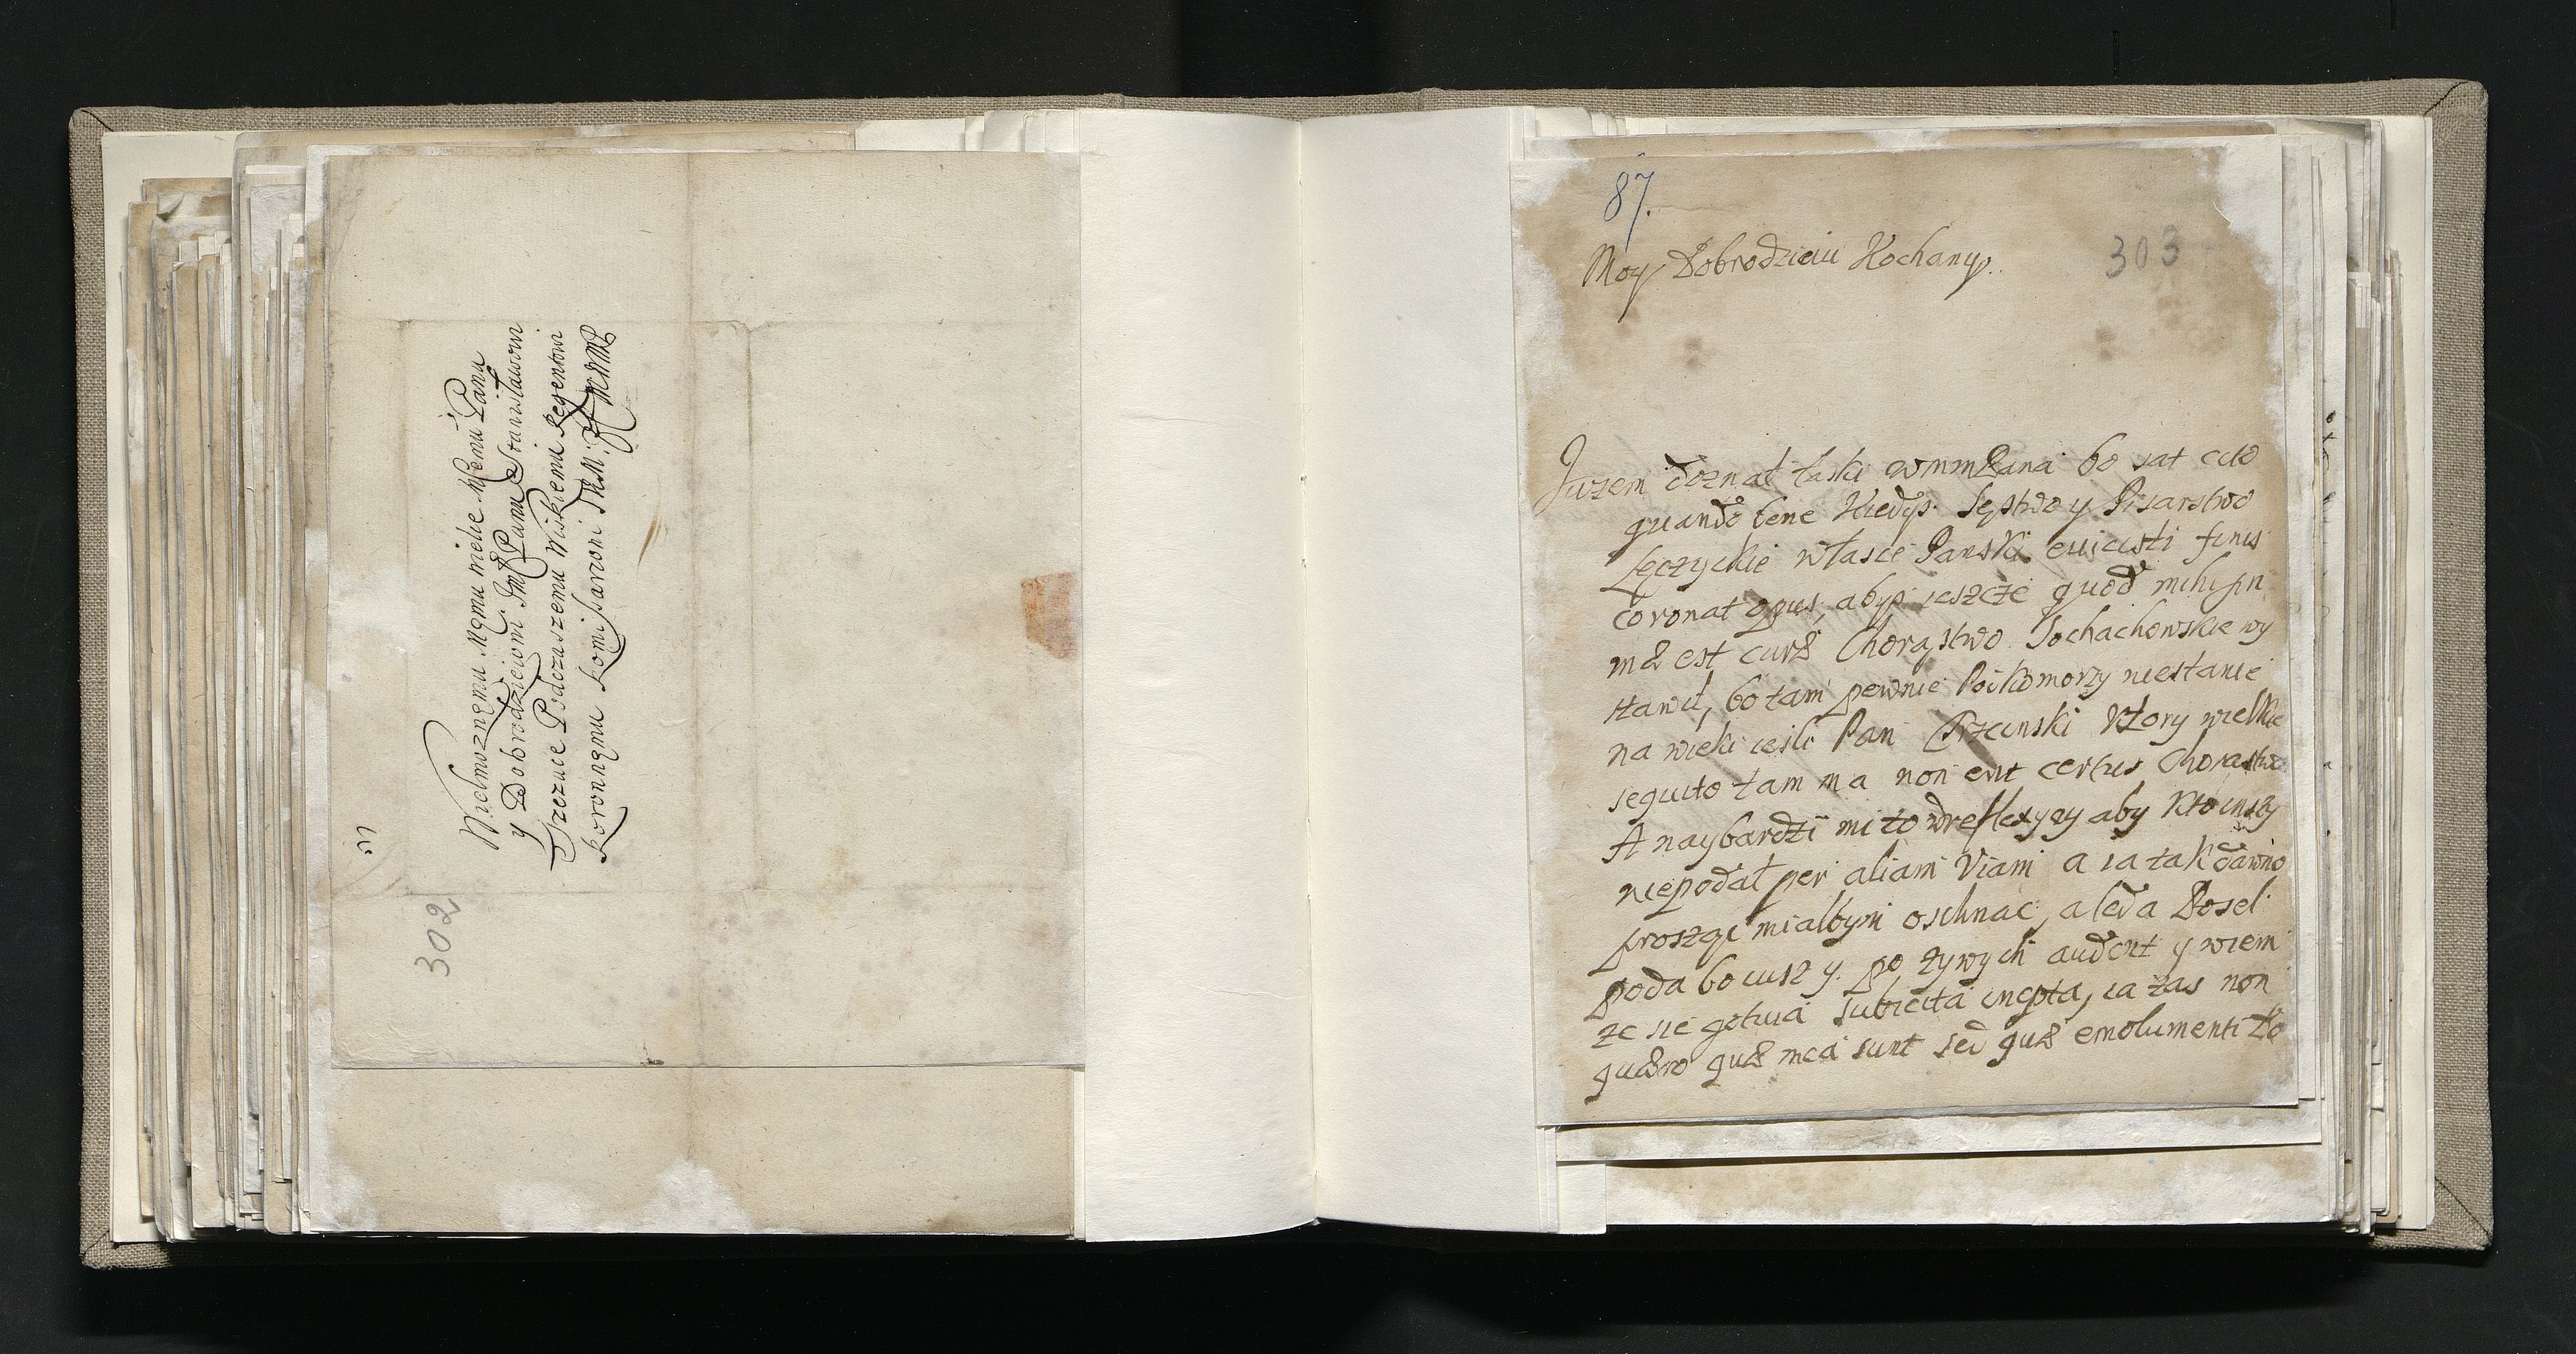 302
Wielmoznęmu Męmu wielie Męmu Panu
y Dobrodzieiowi Jm Panu Stanisławowi
Szczuce Podczaszemu Wiskiemu Regentowi
Koronnęmu Komissarzowi JKM.
87.
303
Moy Dobrodzieiu Kochany.
Juzem doznał łaski wmmPana bo sat cito
quando bene Kiedys Sęstwo y Pisarstwo
Lęczyckie własce Panski euicisti finis
coronat opus, abys ieszcze quod mihi in
est curæ Chorąstwo Sochachowskie wy
stawił, bo tam pewnie Potkomorzy niestanie
na wieki iesli Pan ktory wielkie
seguito tam ma non erit certus Chorąstwa
A naybardzi mi to wreflexyey aby kto inszy
niepodał per aliam Viam a ia tak dawno
proszqc miałbym oschnac, a leda Posel
poda bo iusz y po zywych audent y wiem
ze sie gotuia subiecta inepta, ia zas non
quæro quæ mea sunt sed quæ emolumenti do